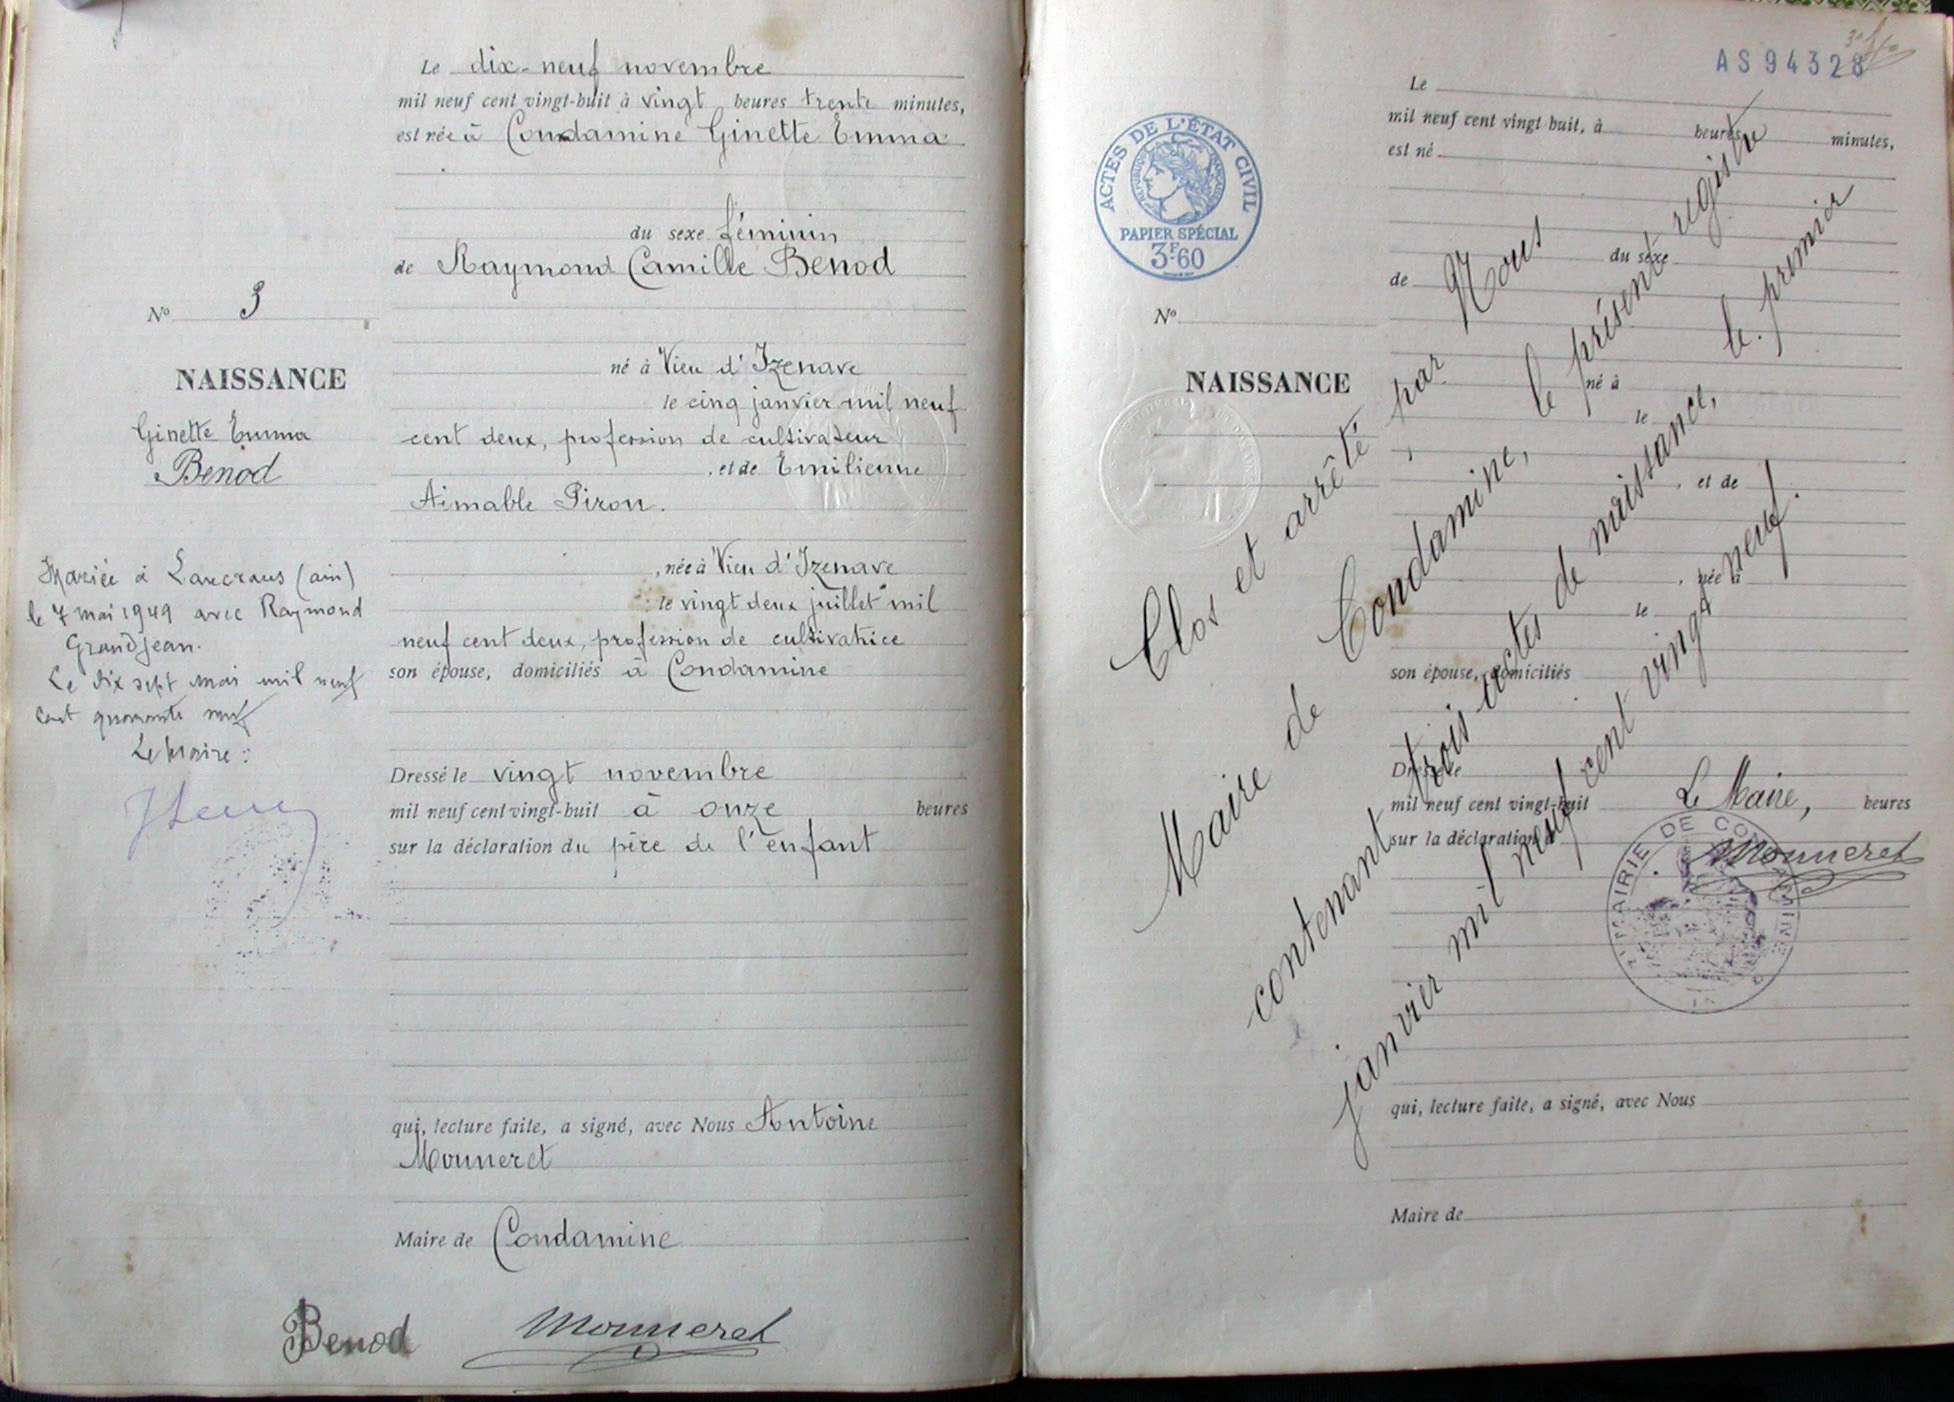 Le dix-neuf novembre
mil neuf cent vingt-huit à vingt heures trente minutes,
est née à Condamine Ginette Emma
du sexe féminin
de Raymond Camille Benod
N° 3
né à Vieu d'Izenave
NAISSANCE
le cinq janvier mil neuf
Ginette Emma
cent deux, profession de cultivateur
Benod
, et de Emilienne
Aimable Piron.
Mariée à Lancrans (ain)
, née à Vieu d'Izenave
le 7 mai 1949 avec Raymond
le vingt deux juillet mil
Grandjean.
neuf cent deux, profession de cultivatrice
Le dix sept mai mil neuf
son épouse, domiciliés à Condamine
cent quarante neuf
Le Maire :
Dressé le vingt novembre
mil neuf cent vingt-huit à onze heures
sur la déclaration du père de l'enfant
qui, lecture faite, a signé, avec Nous Antoine
Mouneret
Maire de Condamine
Benod Mouneret
AS 94328
Le
mil neuf cent vingt huit, à heures minutes,
est né
ACTES DE L'ÉTAT CIVIL
PAPIER SPÉCIAL
3F60
du sexe
de
N°
NAISSANCE
né à
le
, et de
, née à
le
son épouse, domiciliés
Dressé le
mil neuf cent vingt-huit heures
sur la déclaration d
qui, lecture faite, a signé, avec Nous
Maire de
Clos et arrêté, par Nous
Maire de Condamine, le présent registre
contenant trois actes de naissance, le premier
janvier mil neuf cent vingt neuf.
Le Maire,
Mouneret
MAIRIE DE CONDAMINE